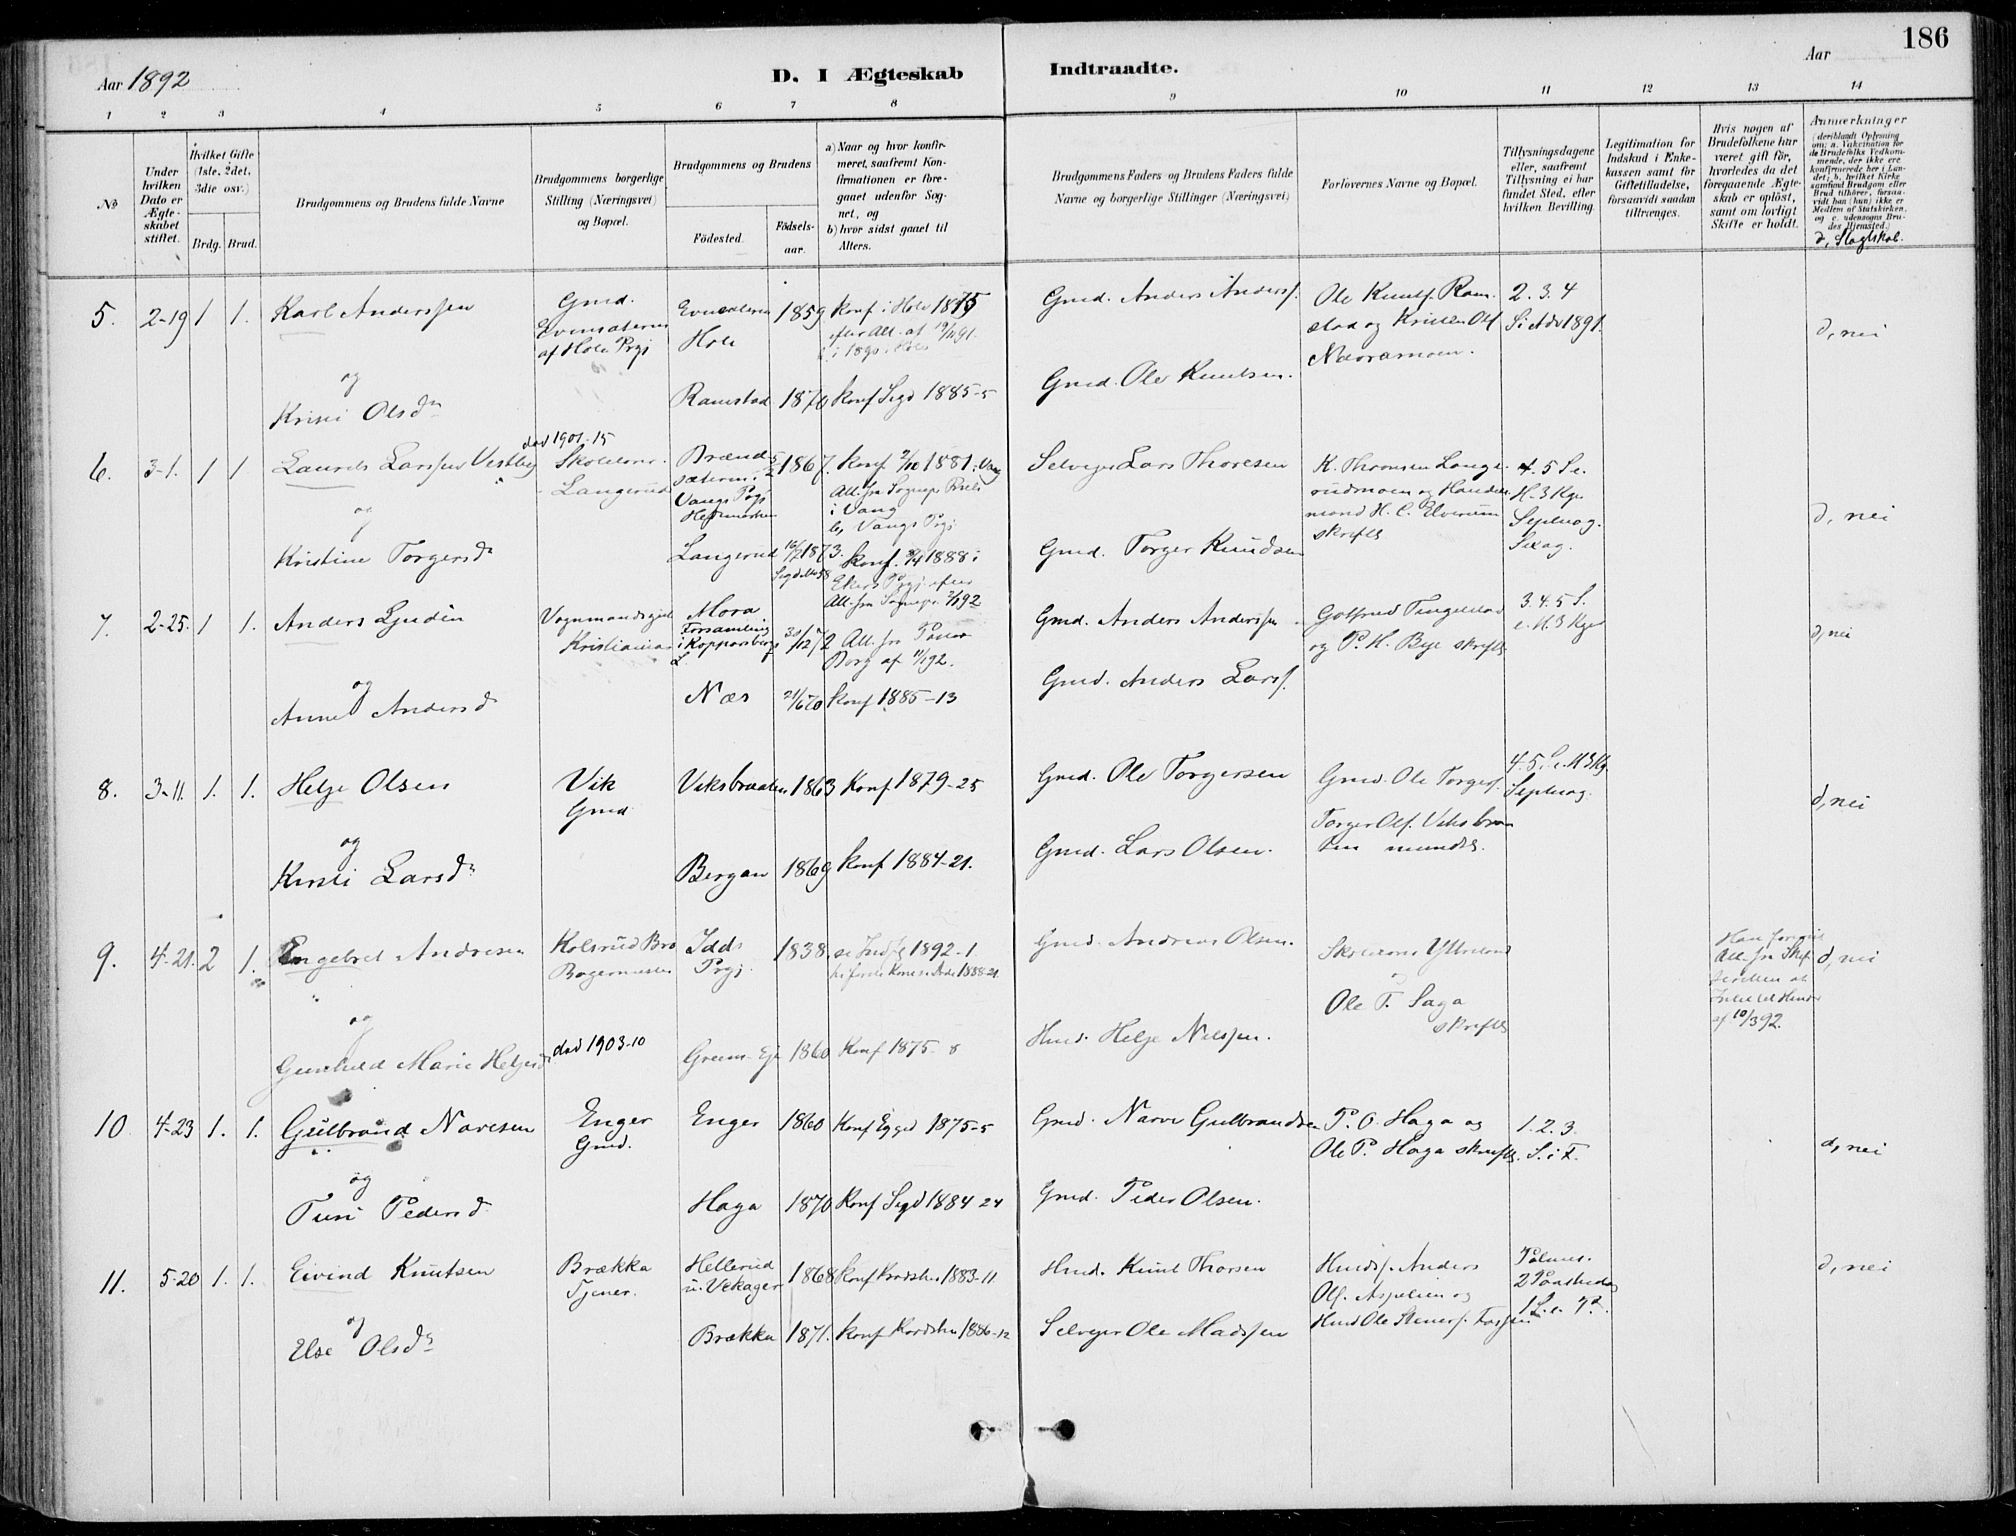 186
Aar 1892
D. I Ægteskab Indtraadte.
Aar
1 2 3 4 5 6 7 8 9 10 11 12 13 14
No
Under hvilken Dato er Ægteskabet stiftet.
Hvilket Gifte (1ste, 2det, 3die osv.)
Brdg. Brud.
Brudgommens og Brudens fulde Navne
Brudgommens borgerlige Stilling (Næringsvei) og Bopæl.
Brudgommens og Brudens
Fødested.
Fødselsaar.
a) Naar og hvor konfirmeret, saafremt Konfirmationen er foregaaet udenfor Sognet, og
b) hvor sidst gaaet til Alters.
Brudgommens Faders og Brudens Faders fulde Navne og borgerlige Stillinger (Næringsvei)
Forlovernes Navne og Bopæl.
Tillysningsdagene eller, saafremt Tillysning ei har fundet Sted, efter hvilken Bevilling
Legitimation for Indskud i Enkekassen samt for Giftetilladelse, forsaavidt saadan tiltrænges.
Hvis nogen af Brudefolkene har været gift før, hvorledes da det foregaaende Ægteskab er opløst, samt om lovligt Skifte er holdt.
Anmærkninger (deriblandt Oplysning om: a. Vakcination for de Brudefolks Vedkommende, der ikke ere konfirmerede her i Landet; b. hvilket Kirkesamfund Brudgom eller Brud tilhører, forsaavidt han (hun) ikke er Medlem af Statskirken, og c. udensogns Brudes Hjemsted.)
d, Slegtskab.
5. 2-19 1 1. Karl Anderssen
Gmd. Evensæteren af Hole Prgj
Hole 1859 konf. i Hole 1875
efter Att. af
i 1890 i Hole
Gmd. Anders Anderss.
Ole Knuts. Ramstad og Kristen Ols. Næversmoen.
2. 3. 4 S. i Adv 1891.
d, nei
og
Kristi Olsdr
Ramstad 1870 konf Sigd 1885-5
Gmd. Ole Knutsen.
6. 3-1. 1 1. Laurits Larssen Vestby
død 1901-15
Skolelærer Langerud
Brændsæteren i Vangs Prgj Hedemarken
1867. konf 2/10 1881 i Vang
Att. fra Sognepr.
i Vang
b, Vangs Prgj
Selveger Lars Thoresen
K. Thomsen Langerudmoen og Handelsmand H. C. Elverum skriftl.
4. 5 S. e. H. 3 Kgr Septuag. Sexag.
d, nei
og
Kristine Torgersdr
Langerud 16/2 1873.
konf. 1888 i
Ekers Prgj. efter
Att. fra Sognepr.
Gmd. Torger Knudsen
7. 2-25. 1 1. Anders Lyndin
Kristiania
Mora Forsamling i Kopparsbergs L.
30/12 72 Att. fra Pastor
Borg af 11/1 92.
Gmd. Anders Anderssen
Gotfred Tingelstad og P. H. Bye skriftl.
3. 4. 5 S. e. H. 3 Kgr
d, nei
og
Anne Andersdr
Næs 21/6 70 konf 1885-13
Gmd. Anders Larss.
8. 3-11. 1. 1. Helge Olsen
Vik Gmd
Viksbraaten 1863 Konf 1879-25
Gmd. Ole Torgersen
Gmd. Ole Torgers. Torger Ols. Viksbraaten mundtl.
4. 5. S. e. H 3 Kg. Septuag.
d, nei
og
Kirsti Larsdr
Bergan 1869 konf 1884-21.
Gmd. Lars Olsen.
9. 4-21. 2 1. Engebret Andresen
Kolsrud Bro
Bogermester
Idds Prgj. 1838. se Indfl 1892-1.
Gmd. Andreas Olsen.
Ole T. Saga skriftl
Att. fra Skif
af 10/3 92.
d, nei
og
Gunhild Marie Helgesdr
død 1903-10
Green Eje 1860 konf 1875-8
Hmd. Helge Nilssen.
10 4-23 1. 1. Gulbrand Narvesen
Enger Gmd.
Enger 1860 Konf Egged 1875-5
Gmd. Narve Gulbrandsen
P. O. Haga og Ole P. Haga skriftl.
1. 2. 3. S. i F.
d, nei
og
Turi Pedersdr
Haga 1870 Konf Sigd 1884-24
Gmd. Peder Olsen.
11. 5-20 1. 1. Eivind Knutsen
Brækka Tjener.
Hellerud u. Vekager 1868 konf 1883-11
Hmd. Knut Thorsen
Hmds. Anders Ols. Aspelien og Hmd Ole Steners.
Palmes. 2 Paaskedag 1 S. e. P.
d, nei
og
Else Olsdr
Brækka 1871. konf 1886-12
Selveger Ole Madssen